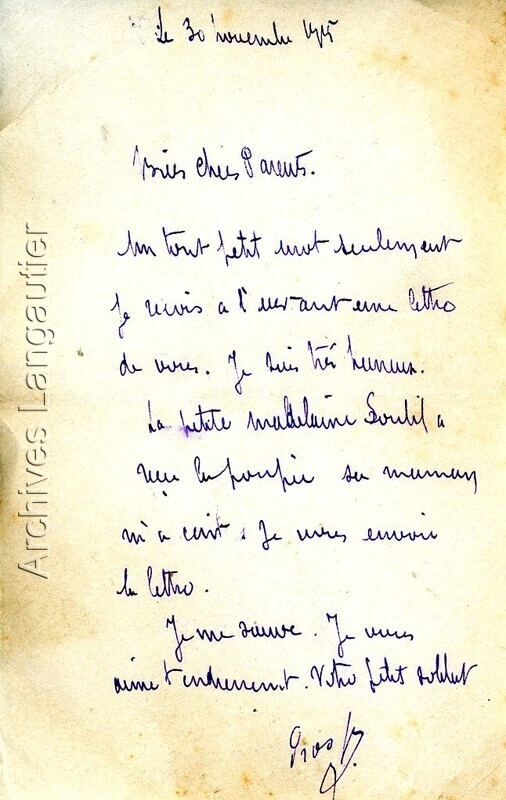 Le 30 novembre 1915
Bien chers Parents.
Un tout petit mot seulement
Je reçois a l'instant une lettre
de vous. Je suis très heureux.
La petite Madelaine Soulil a
reçu la poupée sa maman
m'a écrit. Je vous envoie
la lettre.
Je me sauve. Je vous
aime tendrement. Votre petit soldat
Archives Langautier